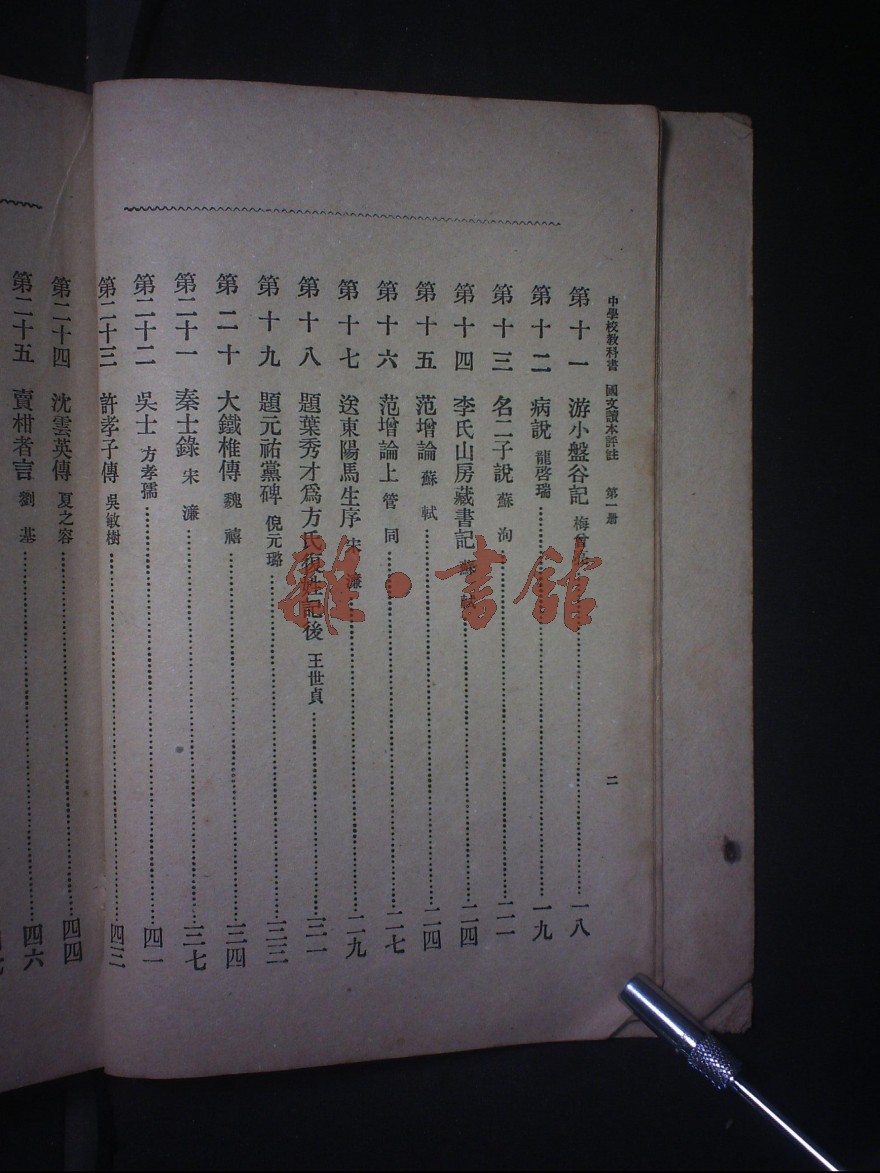 中學校教科書 國文讀本評註 第一册 二
第十一 游小盤谷記 梅曾 一八
第十二 病說 龍啓瑞 一九
第十三 名二子說 蘇洵 二一
第十四 李氏山房藏書記 蘇軾 二四
第十五 范增論 蘇軾 二四
第十六 范增論上 管同 二七
第十七 送東陽馬生序 宋濂 二九
第十八 題葉秀才爲方氏復姓記後 王世貞 三一
第十九 題元祐黨碑 倪元璐 三三
第二十 大鐵椎傳 魏禧 三四
第二十一 秦士錄 宋濂 三七
第二十二 吳士 方孝孺 四一
第二十三 許孝子傳 吳敏樹 四三
第二十四 沈雲英傳 夏之容 四四
第二十五 賣柑者言 劉基 四六
雜·書館